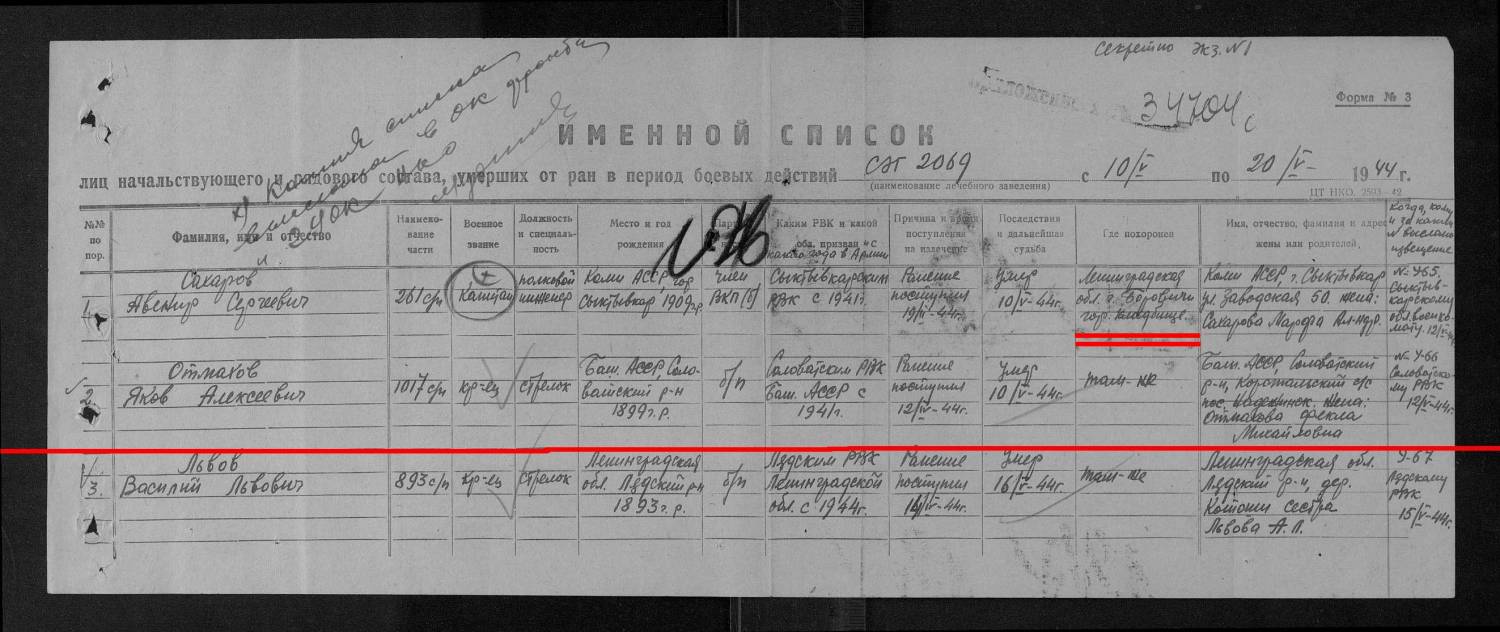 Секретно Экз. N1
Приложение
34704с
Форма № 3
Копия списка
выслана в ОК фронта
ИМЕННОЙ СПИСОК
лиц начальствующего и рядового состава, умерших от ран в период боевых действий СЭГ 2069 с 10/V по 20/V- 1944г.
(наименование лечебного заведения)
ЦТ НКО. 2503—42
№№ по пор.
Фамилия, имя и отчество
Наимено-вание части
Военное звание
Должность и специаль-ность
Место и год рождения
Каким РВК и какой обл. призван и с какого года в Армии
Причина и время поступления на излечение
Последствия и дальнейшая судьба
Где похоронен
Имя, отчество, фамилия и адрес жены или родителей.
Когда, кому и за каким N выслано извещение
1.
Сахаров
Авенир Сергеевич
261 с/п
Капитан
полковой инженер
Коми АССР, гор. Сыктывкар 1909г.р.
член ВКП(б)
Сыктывкарским РВК с 1941г.
Ранение поступил 19/IV-44г.
Умер 10/V-44г.
Ленинградская обл. г. Боровичи гор. кладбище
Коми АССР, г. Сыктывкар ул. Заводская 50. жена: Сахарова Марфа Ал-ндр.
N-465. Сыктыв-карскому обл.военко-мату. 12/V-44г
2.
Отмахов
Яков Алексеевич
1017 с/п
Кр-ец
стрелок
Баш. АССР, Сало-ватский р-н 1899г.р.
б/п
Саловатским РВК Баш. АССР с 1941г.
Ранение поступил 12/IV-44г.
Умер 10/V-44г.
там-же
Баш. АССР, Саловатский р-н, с/с пос. жена: Отмахова Фекла Михайловна
N-466 Саловатско-му РВК 12/V-44г.
3.
Львов
Василий Львович
893 с/п
Кр-ец
стрелок
Ленинградская обл. Лядский р-н 1893г.р.
б/п
Лядским РВК Ленинградской обл. с 1944г.
Ранение поступил 14/IV-44г.
Умер 16/V-44г.
там-же
Ленинградская обл. Лядский р-н, дер. сестра Львова А.Л.
467 Лядскому РВК 15/V-44г.